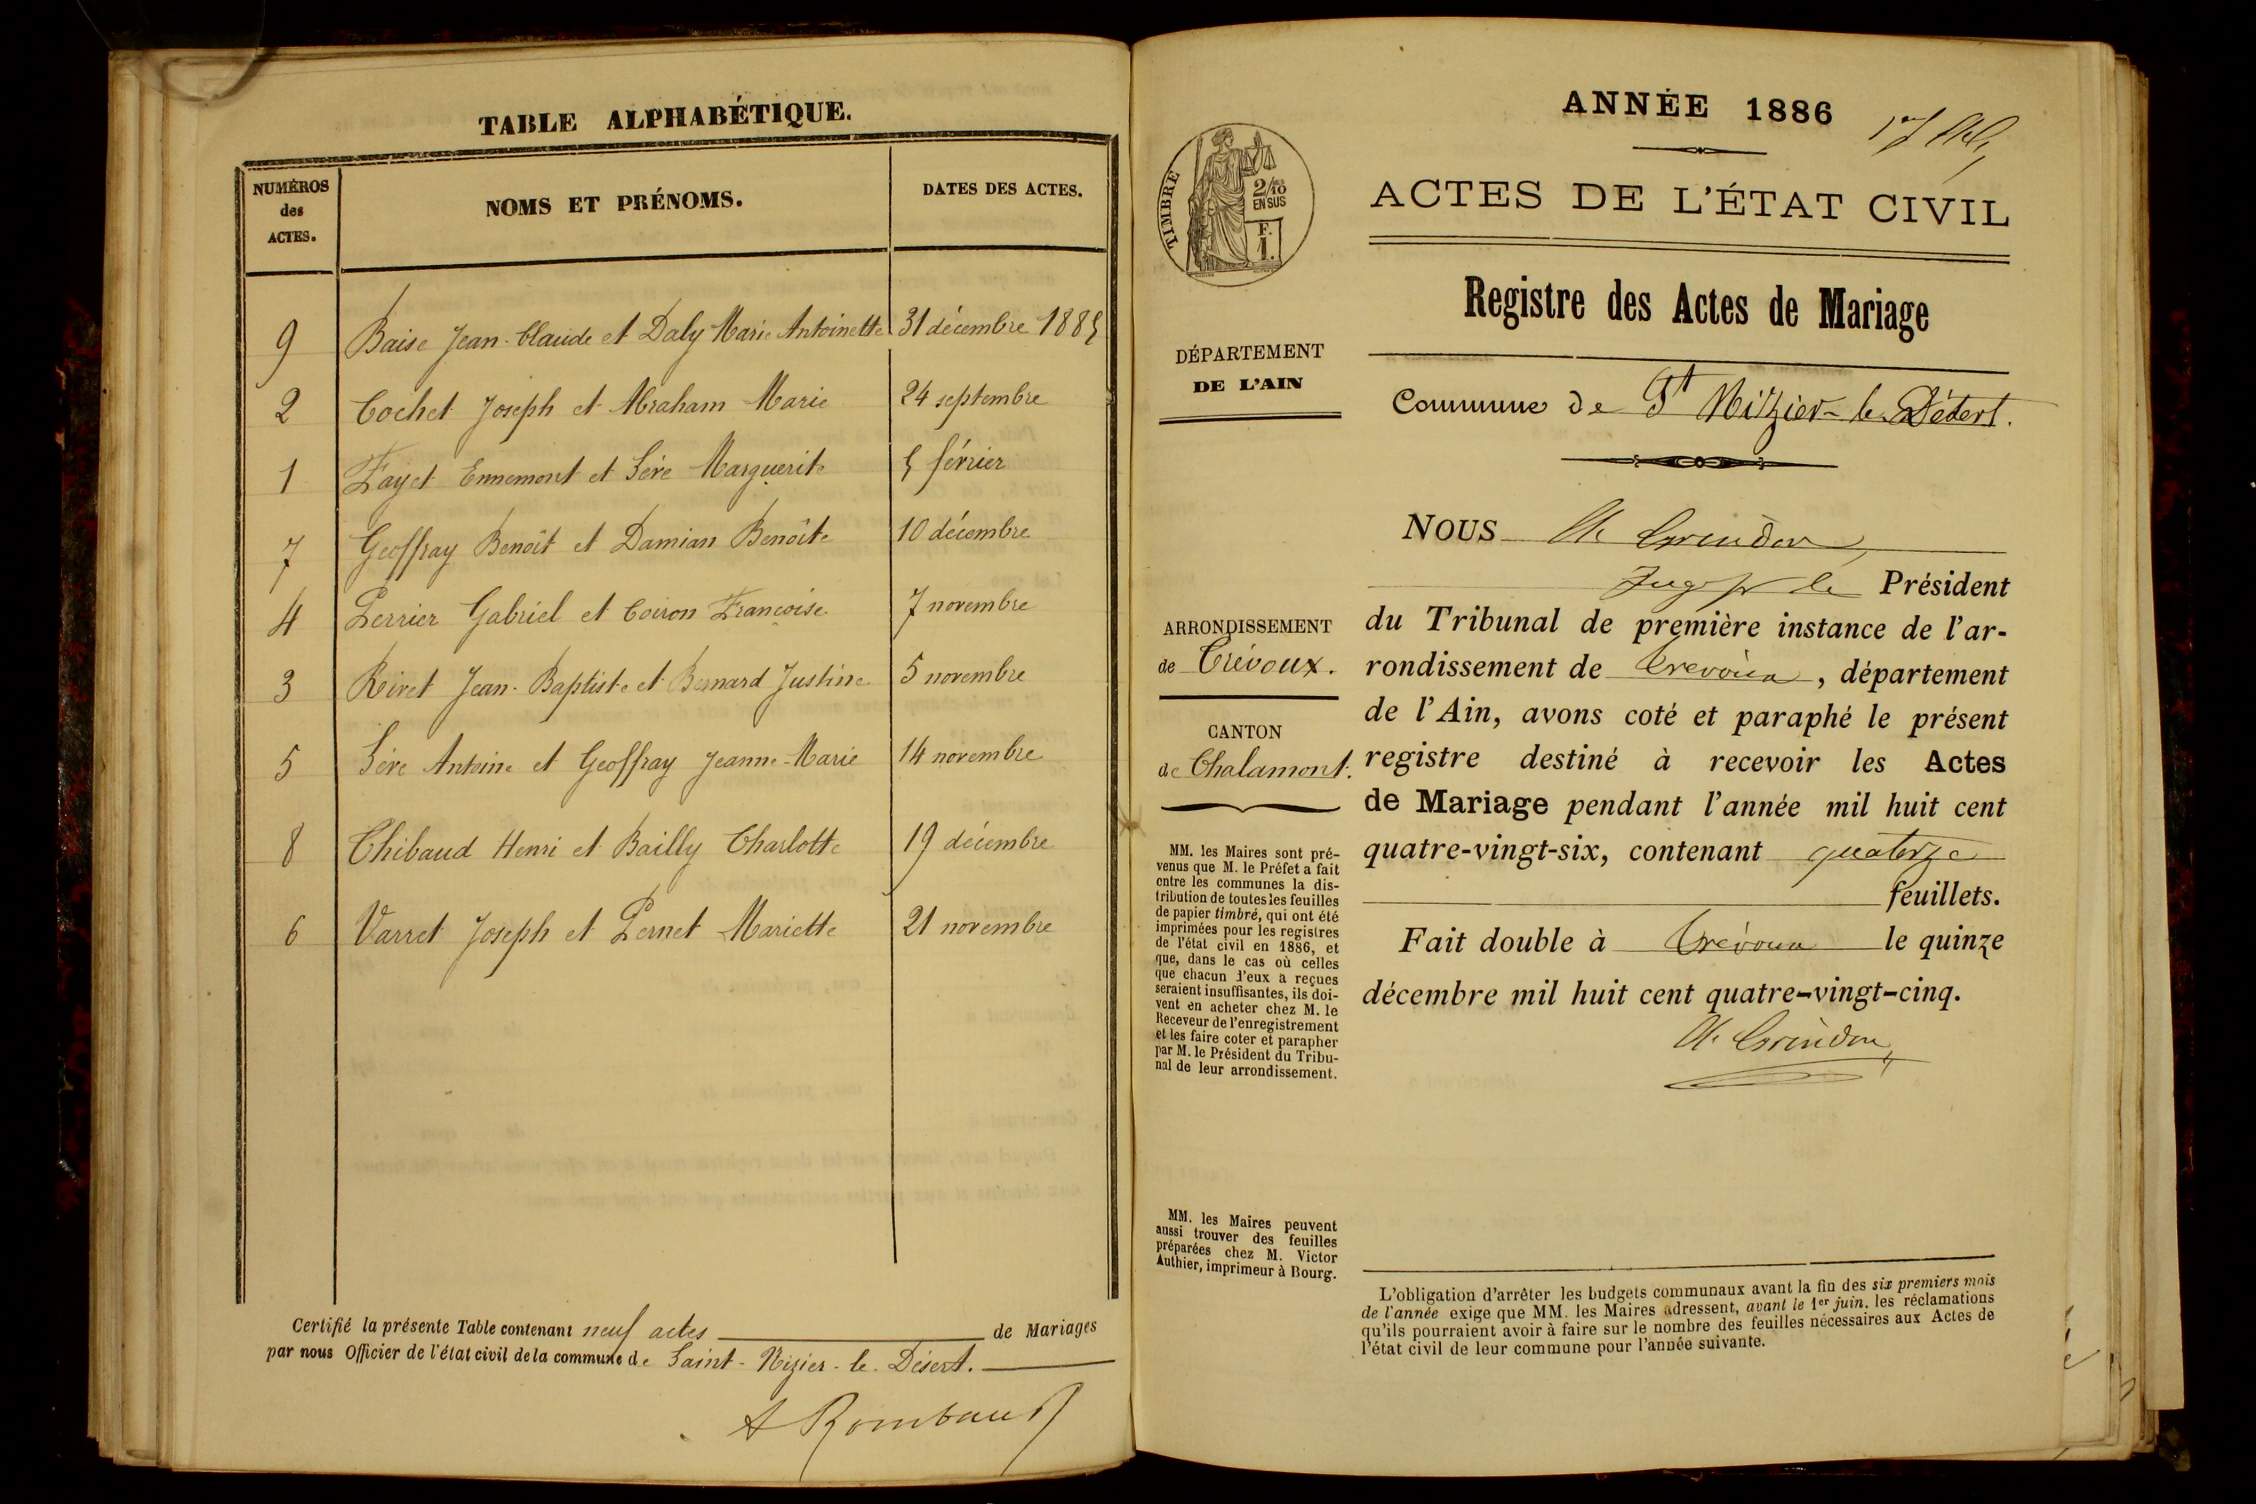 TABLE ALPHABÉTIQUE.
NUMÉROS des ACTES. NOMS ET PRÉNOMS. DATES DES ACTES.
9 Baise Jean-Claude et Daly Marie Antoinette 31 décembre 1885
2 Cochet Joseph et Abraham Marie 24 septembre
1 Fayet Ennemont et Sère Marguerite 5 février
7 Geoffray Benoît et Damian Benoîte 10 décembre
4 Perrier Gabriel et Coiron Françoise 7 novembre
3 Rivet Jean-Baptiste et Bernard Justine 5 novembre
5 Sère Antoine et Geoffray Jeanne-Marie 14 novembre
8 Thibaud Henri et Bailly Charlotte 19 décembre
6 Varret Joseph et Pernet Mariette 21 novembre
Certifié la présente Table contenant neuf actes de Mariages
par nous Officier de l'état civil de la commune de Saint-Nizier-le-Désert.
A Rombaud
ANNÉE 1886
TIMBRE
2/10 EN SUS
F. 1.
ACTES DE L'ÉTAT CIVIL
Registre des Actes de Mariage
DÉPARTEMENT
DE L'AIN
Commune de St Nizier-le-Désert.
NOUS
Président
ARRONDISSEMENT
de Trévoux.
CANTON
de Chalamont.
du Tribunal de première instance de l'ar-
rondissement de Trévoux, département
de l'Ain, avons coté et paraphé le présent
registre destiné à recevoir les Actes
de Mariage pendant l'année mil huit cent
quatre-vingt-six, contenant quatorze
feuillets.
Fait double à Trévoux le quinze
décembre mil huit cent quatre-vingt-cinq.
MM. les Maires sont pré-
venus que M. le Préfet a fait
entre les communes la dis-
tribution de toutes les feuilles
de papier timbré, qui ont été
imprimées pour les registres
de l'état civil en 1886, et
que, dans le cas où celles
que chacun d'eux a reçues
seraient insuffisantes, ils doi-
vent en acheter chez M. le
Receveur de l'enregistrement
et les faire coter et parapher
par M. le Président du Tribu-
nal de leur arrondissement.
MM. les Maires peuvent
aussi trouver des feuilles
préparées chez M. Victor
Authier, imprimeur à Bourg.
L'obligation d'arrêter les budgets communaux avant la fin des six premiers mois
de l'année exige que MM. les Maires adressent, avant le 1er juin, les réclamations
qu'ils pourraient avoir à faire sur le nombre des feuilles nécessaires aux Actes de
l'état civil de leur commune pour l'année suivante.